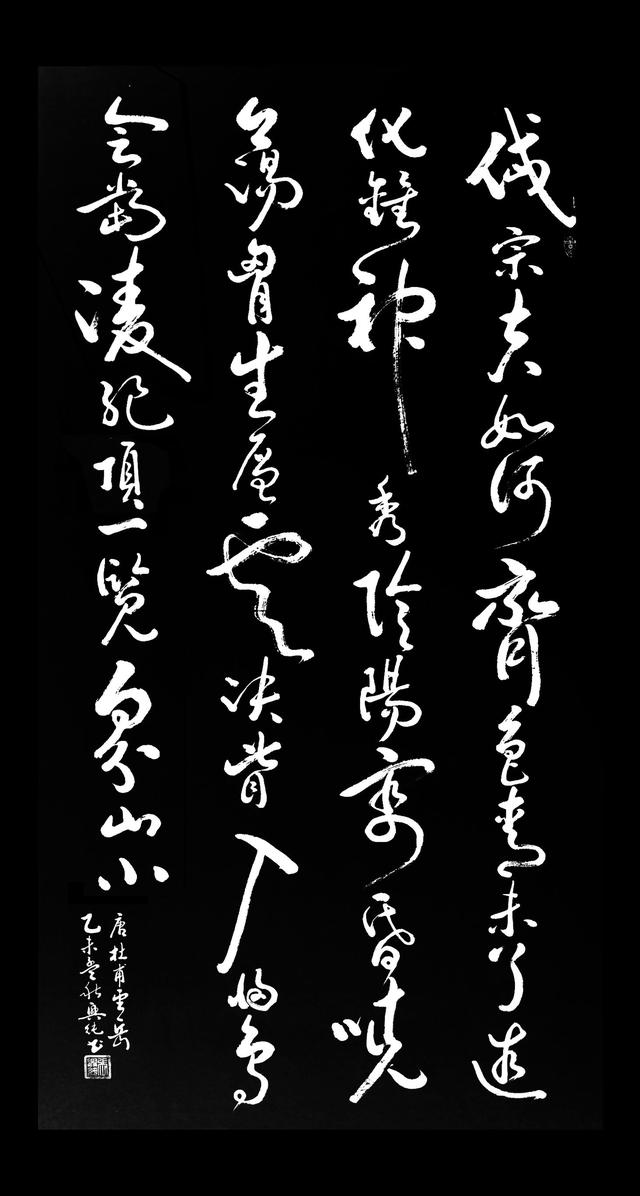 岱宗夫如何齊魯青未了造
化鍾神秀陰陽割昏曉
盪胸生層雲決眥入歸鳥
會當凌絕頂一覽眾山小
唐杜甫望岳
乙未孟秋興純书